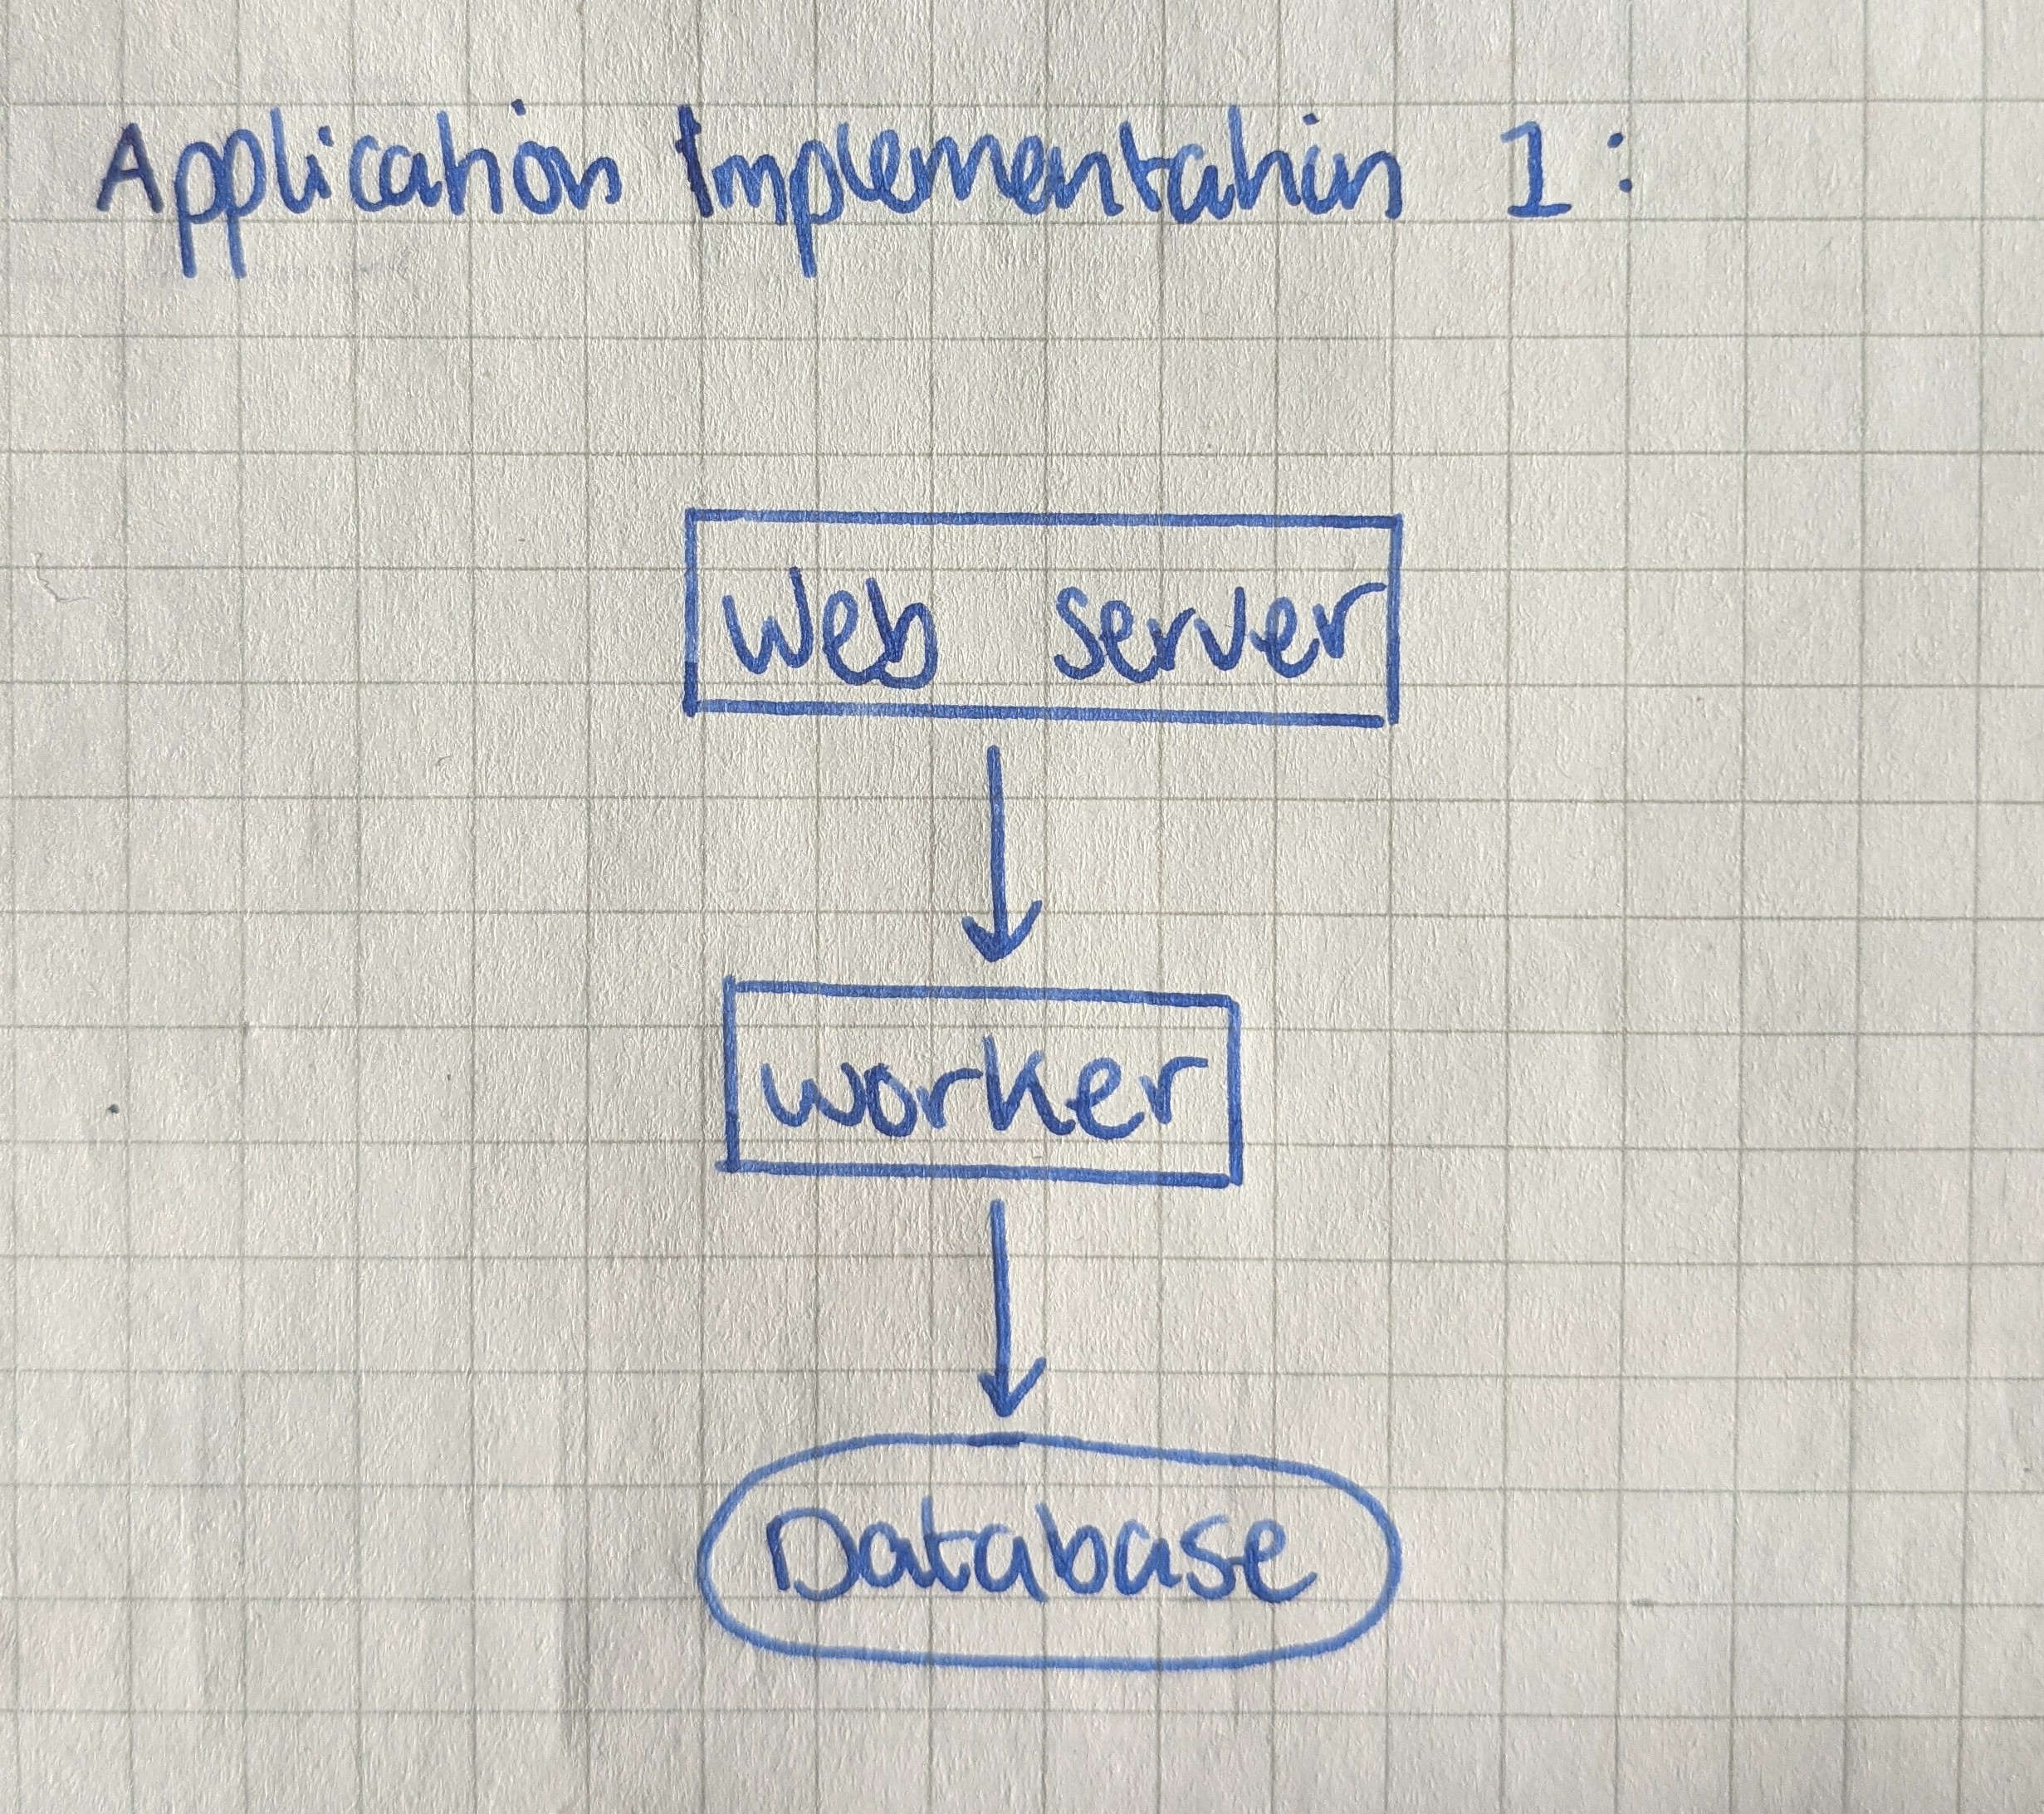 Application Implementation 1:
Web server
worker
Database